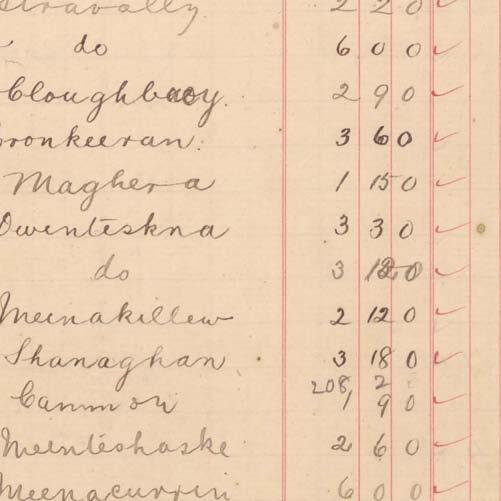 Stravally 2 2 0 ✓
do 6 0 0 ✓
Cloughboy. 2 9 0 ✓
Cronkeeran. 3 6 0 ✓
Maghera 1 15 0 ✓
Owenteskna 3 3 0 ✓
do 3 0 ✓
Meenakillew 2 12 0 ✓
Shanaghan 3 18 0 ✓
208, 2
Canmon 1 9 0 ✓
Meenteshaske 2 6 0 ✓
Meenacurrin 6 0 0 ✓